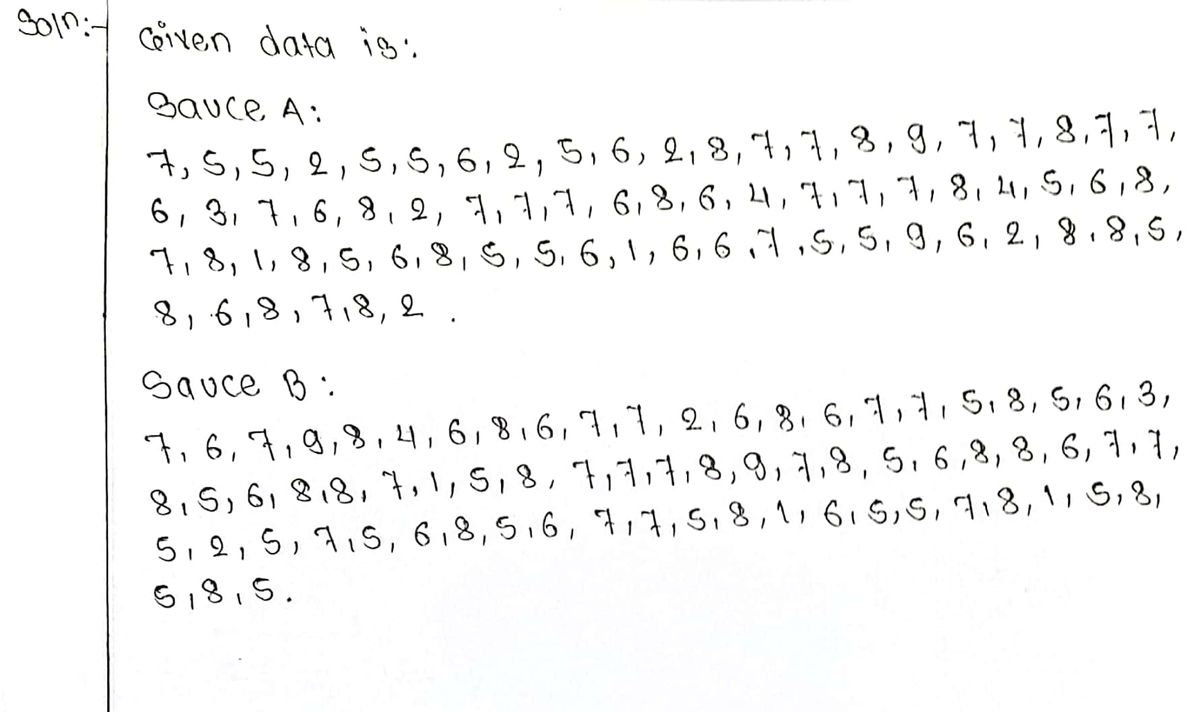 Soln:-
Given data is:
Sauce A:
7, 5, 5, 2, 5, 5, 6, 2, 5, 6, 2, 8, 7, 7, 8, 9, 7, 7, 8, 7, 7,
6, 3, 7, 6, 8, 2, 7, 7, 7, 6, 8, 6, 4, 7, 7, 7, 8, 4, 5, 6, 8,
7, 8, 1, 8, 5, 6, 8, 5, 5, 6, 1, 6, 6, 7, 5, 5, 9, 6, 2, 8, 8, 5,
8, 6, 8, 7, 8, 2.
Sauce B:
7, 6, 7, 9, 8, 4, 6, 8, 6, 7, 7, 2, 6, 8, 6, 7, 7, 5, 8, 5, 6, 3,
8, 5, 6, 8, 8, 7, 1, 5, 8, 7, 7, 7, 8, 9, 7, 8, 5, 6, 8, 8, 6, 7, 7,
5, 2, 5, 7, 5, 6, 8, 5, 6, 7, 7, 5, 8, 1, 6, 5, 5, 7, 8, 1, 5, 8,
5, 8, 5.